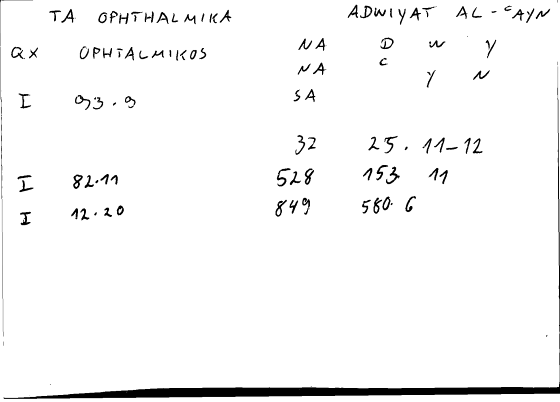 TA OPHTHALMIKA ADWIYAT AL-ᶜAYN
QX OPHTALMIKOS NA D W Y
NA C Y N
I 93.9 SA
32 25. 11-12
I 82.11 528 153. 11
I 12.20 849 580.6